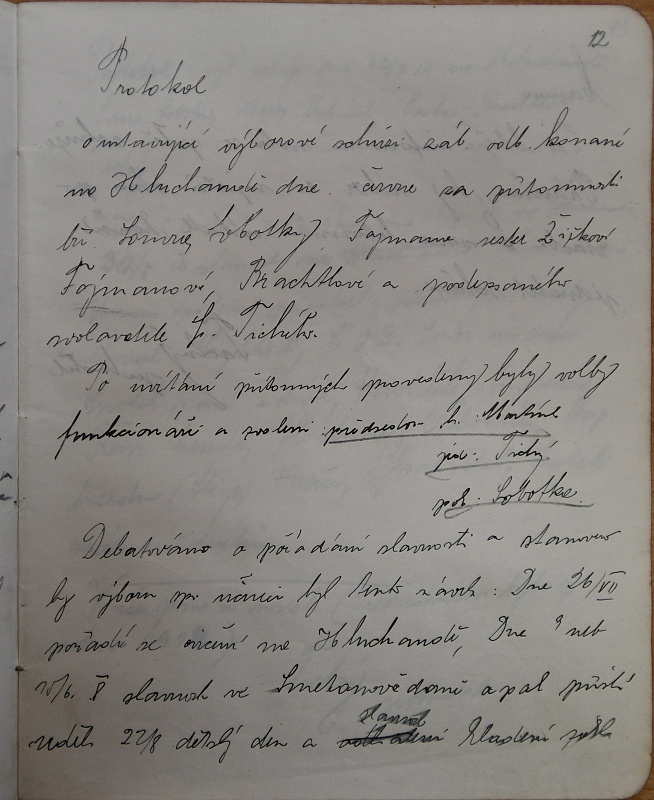 12
Protokol
o ustavující výborové schůzi záb. odb. konané
na Hluchandě dne. června za přítomnosti
br. Sobotky, Fajmana sester Žižkové
Fajmanové, Brachtlové a podepsaného
svolavatele fr. Tichého.
Po uvítání přítomných provedeny byly volby
funkcionářů a zvoleni: předsedou br. Martínek
jed.: Tichý
pok.: Sobotka.
Debatováno o pořádání slavnosti a stanoven
by výborem byl tento návrh: Dne 26/VII
pořádá se cvičení na Hluchandě, Dne 9 neb
slavnost ve Smetanově a pak příští
neděli 22/8 dětský den a slavnost kladení